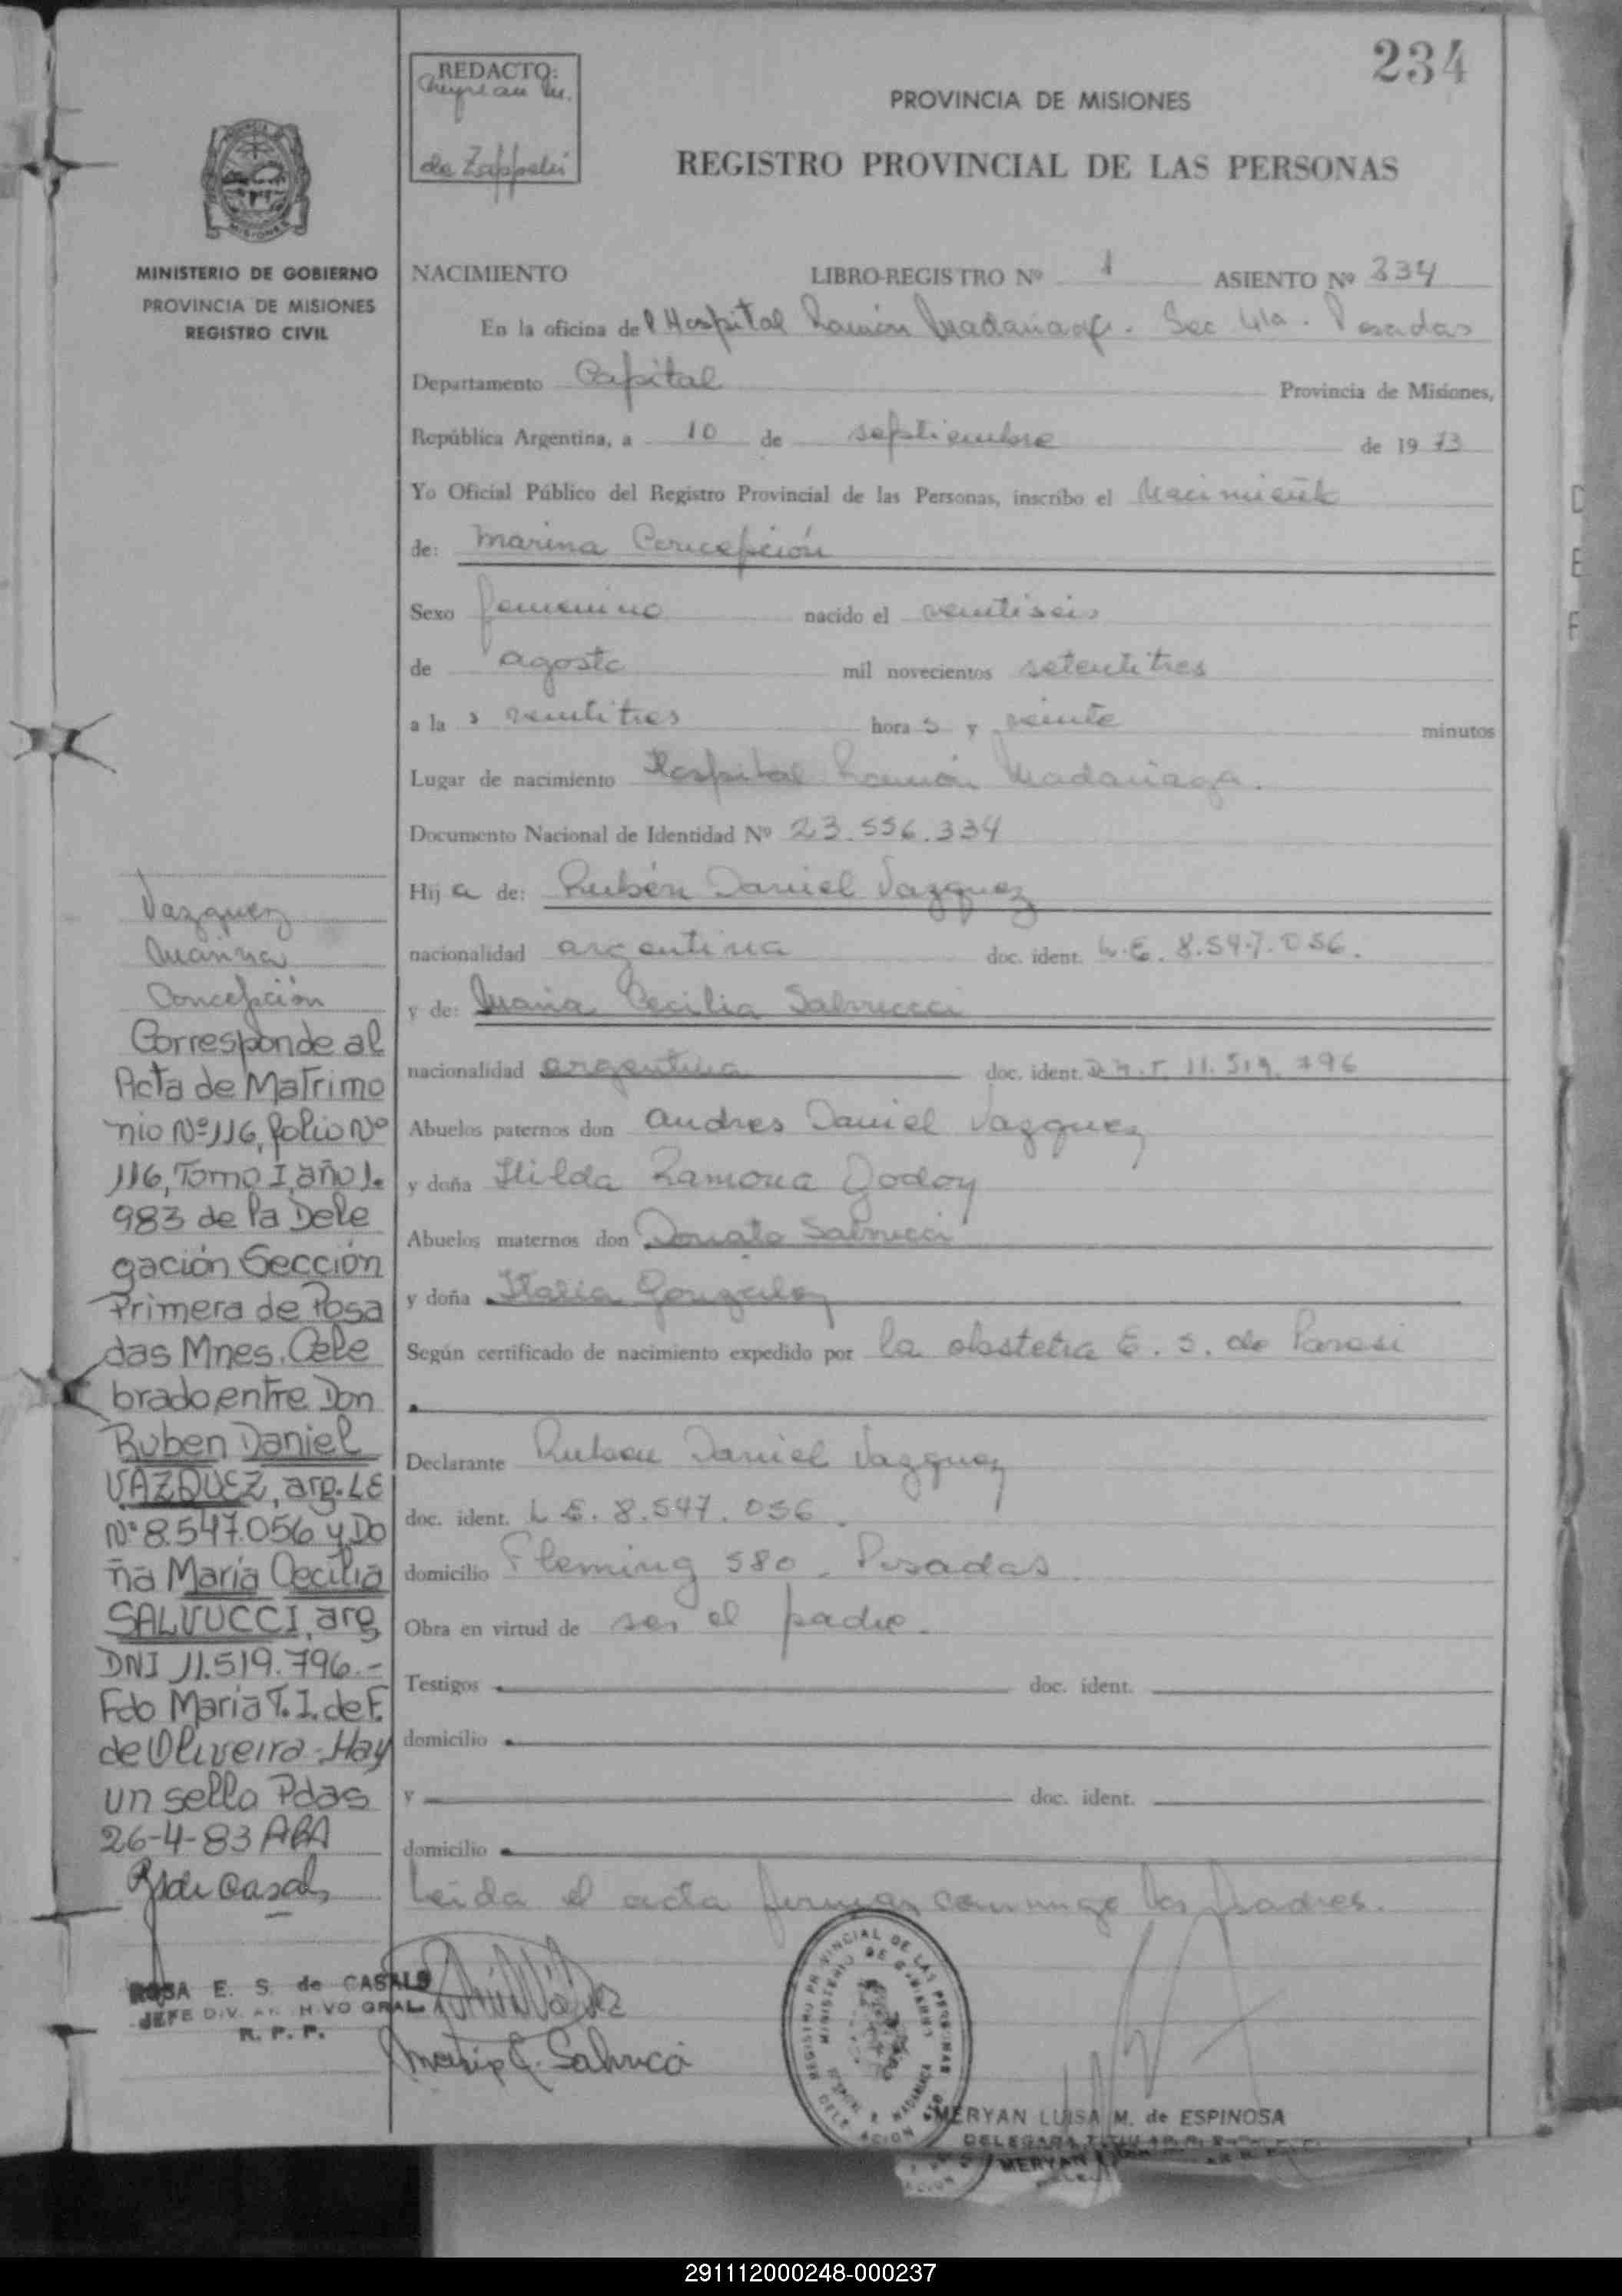 234
REDACTO:
de Zappelli
PROVINCIA DE MISIONES
REGISTRO PROVINCIAL DE LAS PERSONAS
MINISTERIO DE GOBIERNO
PROVINCIA DE MISIONES
REGISTRO CIVIL
NACIMIENTO LIBRO-REGISTRO Nº 1 ASIENTO Nº 234
En la oficina del Hospital Ramón Madariaga. Sec 4ta. Posadas
Departamento Capital Provincia de Misiones,
República Argentina, a 10 de septiembre de 1973
Yo Oficial Público del Registro Provincial de las Personas, inscribo el Nacimiento
de: Marina Concepción
Sexo femenino nacido el veintiseis
de agosto mil novecientos setentitres
a la s veintitres hora s y veinte minutos
Lugar de nacimiento Hospital Ramón Madariaga.
Documento Nacional de Identidad Nº 23.556.334
Hij a de: Rubén Daniel Vazquez
nacionalidad argentina doc. ident. L.E. 8.547.056.
y de: María Cecilia Salvucci
nacionalidad argentina doc. ident. D.N.I. 11.519.796
Abuelos paternos don Andres Daniel Vazquez
y doña Hilda Ramona Godoy
Abuelos maternos don Donato Salvucci
y doña Italia Gonzalez
Según certificado de nacimiento expedido por la obstetra E. S. de Paresi
Declarante Ruben Daniel Vazquez
doc. ident. L.E. 8.547.056.
domicilio Fleming 580. Posadas
Obra en virtud de ser el padre.
Testigos doc. ident.
domicilio
y doc. ident.
domicilio
Leida el acta firman conmigo los padres.
Vazquez
Marina
Concepción
Corresponde al
Acta de Matrimo
nio Nº 116, folio Nº
116, Tomo I, año 1.
983 de la Dele
gación Sección
Primera de Posa
das Mnes. Cele
brado, entre Don
Ruben Daniel
VAZQUEZ, arg. LE
Nº 8.547.056 y Do
ña María Cecilia
SALVUCCI, arg
DNI 11.519.796.-
Fdo María T. I. de F.
de Oliveira - Hay
un sello Pdas
26-4-83 ABA
R S de Casals
ROSA E. S. de CASALS
JEFE DIV. ARCHIVO GRAL.
R. P. P.
Maria C. Salvucci
REGISTRO PROVINCIAL DE LAS PERSONAS
MINISTERIO DE GOBIERNO
MERYAN LUISA M. de ESPINOSA
MERYAN
291112000248-000237